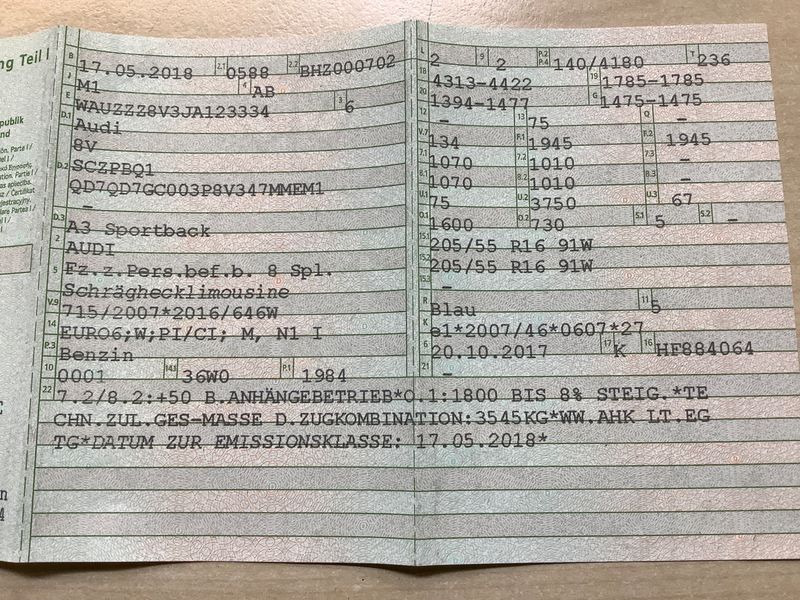 ng Teil I
B 17.05.2018 2.1 0588 2.2 BHZ000702
J M1 4 AB
E WAUZZZ8V3JA123334 3 6
D.1 Audi
8V
D.2 SCZPBQ1
QD7QD7GC003P8V347MMEM1
-
D.3 A3 Sportback
2 AUDI
5 Fz.z.Pers.bef.b. 8 Spl.
Schräghecklimousine
V.9 715/2007*2016/646W
14 EURO6;W;PI/CI; M, N1 I
P.3 Benzin
10 0001 14.1 36W0 P.1 1984
L 2 9 2 P.2 P.4 140/4180 T 236
18 4313-4422 19 1785-1785
20 1394-1477 G 1475-1475
12 - 13 75 Q -
V.7 134 F.1 1945 F.2 1945
7.1 1070 7.2 1010 7.3 -
8.1 1070 8.2 1010 8.3 -
U.1 75 U.2 3750 U.3 67
O.1 1600 O.2 730 S.1 5 S.2 -
15.1 205/55 R16 91W
15.2 205/55 R16 91W
15.3 -
R Blau 11 5
K e1*2007/46*0607*27
6 20.10.2017 17 K 16 HF884064
21 -
22 7.2/8.2:+50 B.ANHÄNGEBETRIEB*O.1:1800 BIS 8% STEIG.*TE
CHN.ZUL.GES-MASSE D.ZUGKOMBINATION:3545KG*WW.AHK LT.EG
TG*DATUM ZUR EMISSIONSKLASSE: 17.05.2018*